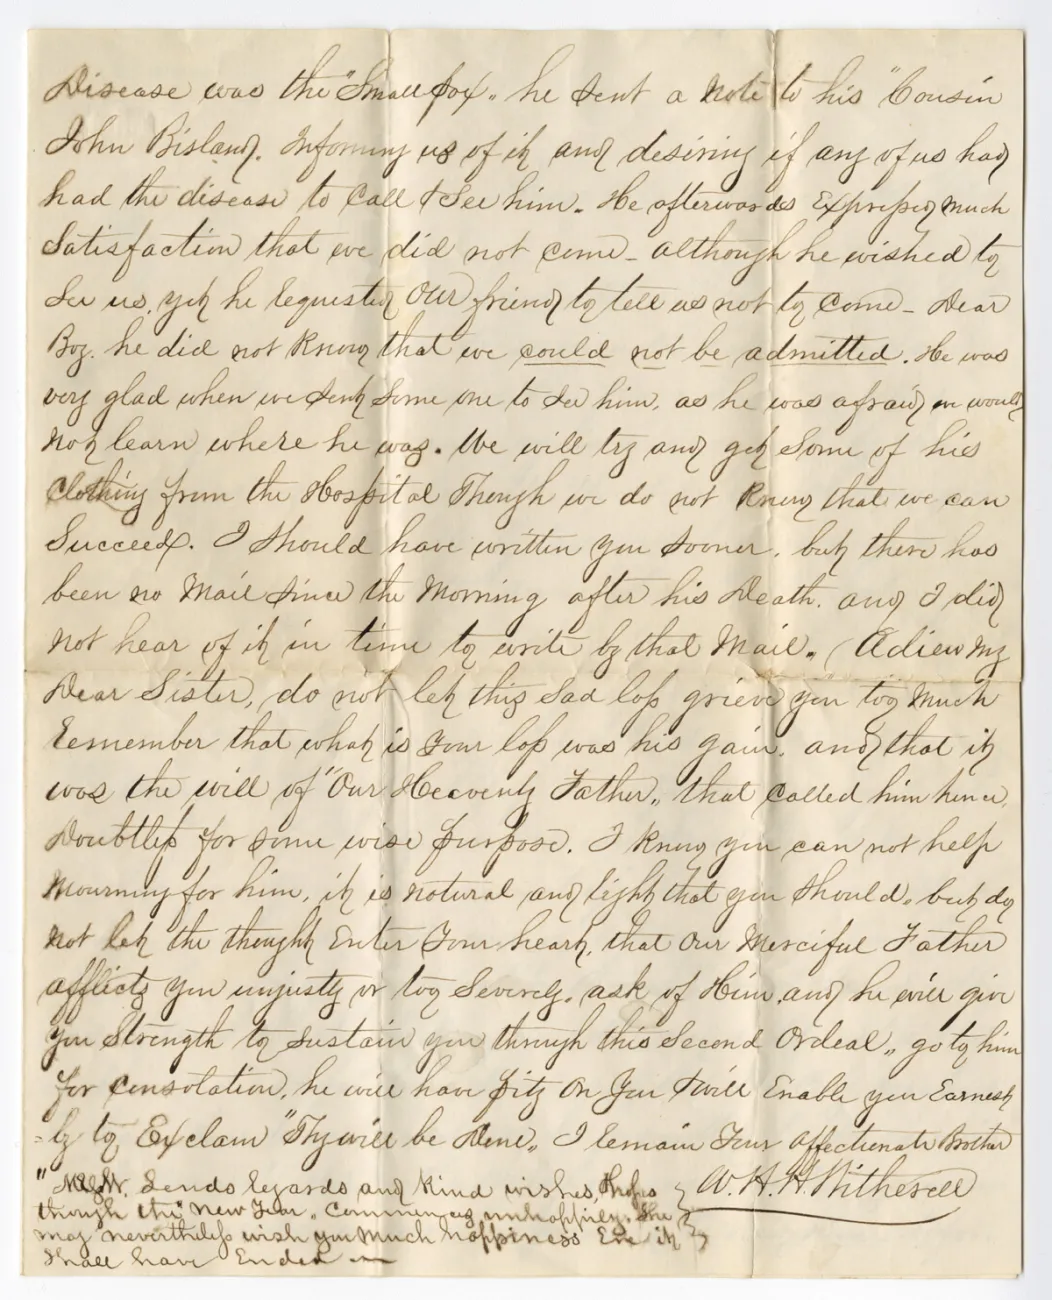 Disease was the "Small pox" he sent a Note to his "Cousin
John Bisland. Informing us of it and desiring if any of us had
had the disease to Call & See him. He afterwards Expressed Much
Satisfaction that we did not come - although he wished to
See us, yet he requested Our friend to tell us not to Come - Dear
Boy. he did not Know that we could not be admitted. He was
very glad when we sent Some one to see him, as he was afraid we would
not learn where he was. We will try and get Some of his
Clothing from the Hospital Though we do not Know that we can
Succeed. I Should have written you sooner, but there has
been no Mail since the Morning after his Death. and I did
Not hear of it in time to write by that Mail. (Adieu My
Dear Sister, do not let this Sad loss grieve you too Much
Remember that what is your loss was his gain. and that it
was the will of "Our Heavenly Father" that called him hence,
Doubtless for some wise purpose. I Know you can not help
Mourning for him, it is natural and right that you Should, but do
Not let the thought Enter Your heart, that Our Merciful Father
afflicts you unjustly or too Severely. ask of Him, and he will give
you Strength to sustain you through this Second Ordeal, go to him
for consolation, he will have pity On You & will Enable you Earnest
=ly to Exclaim "Thy will be Done" I remain Your affectionate Brother
W. H. H. Witherell
Sends regards and kind wishes,
though the "New Year" Commences unhappily. She
may nevertheless wish you Much happiness Ere it
Shall have Ended